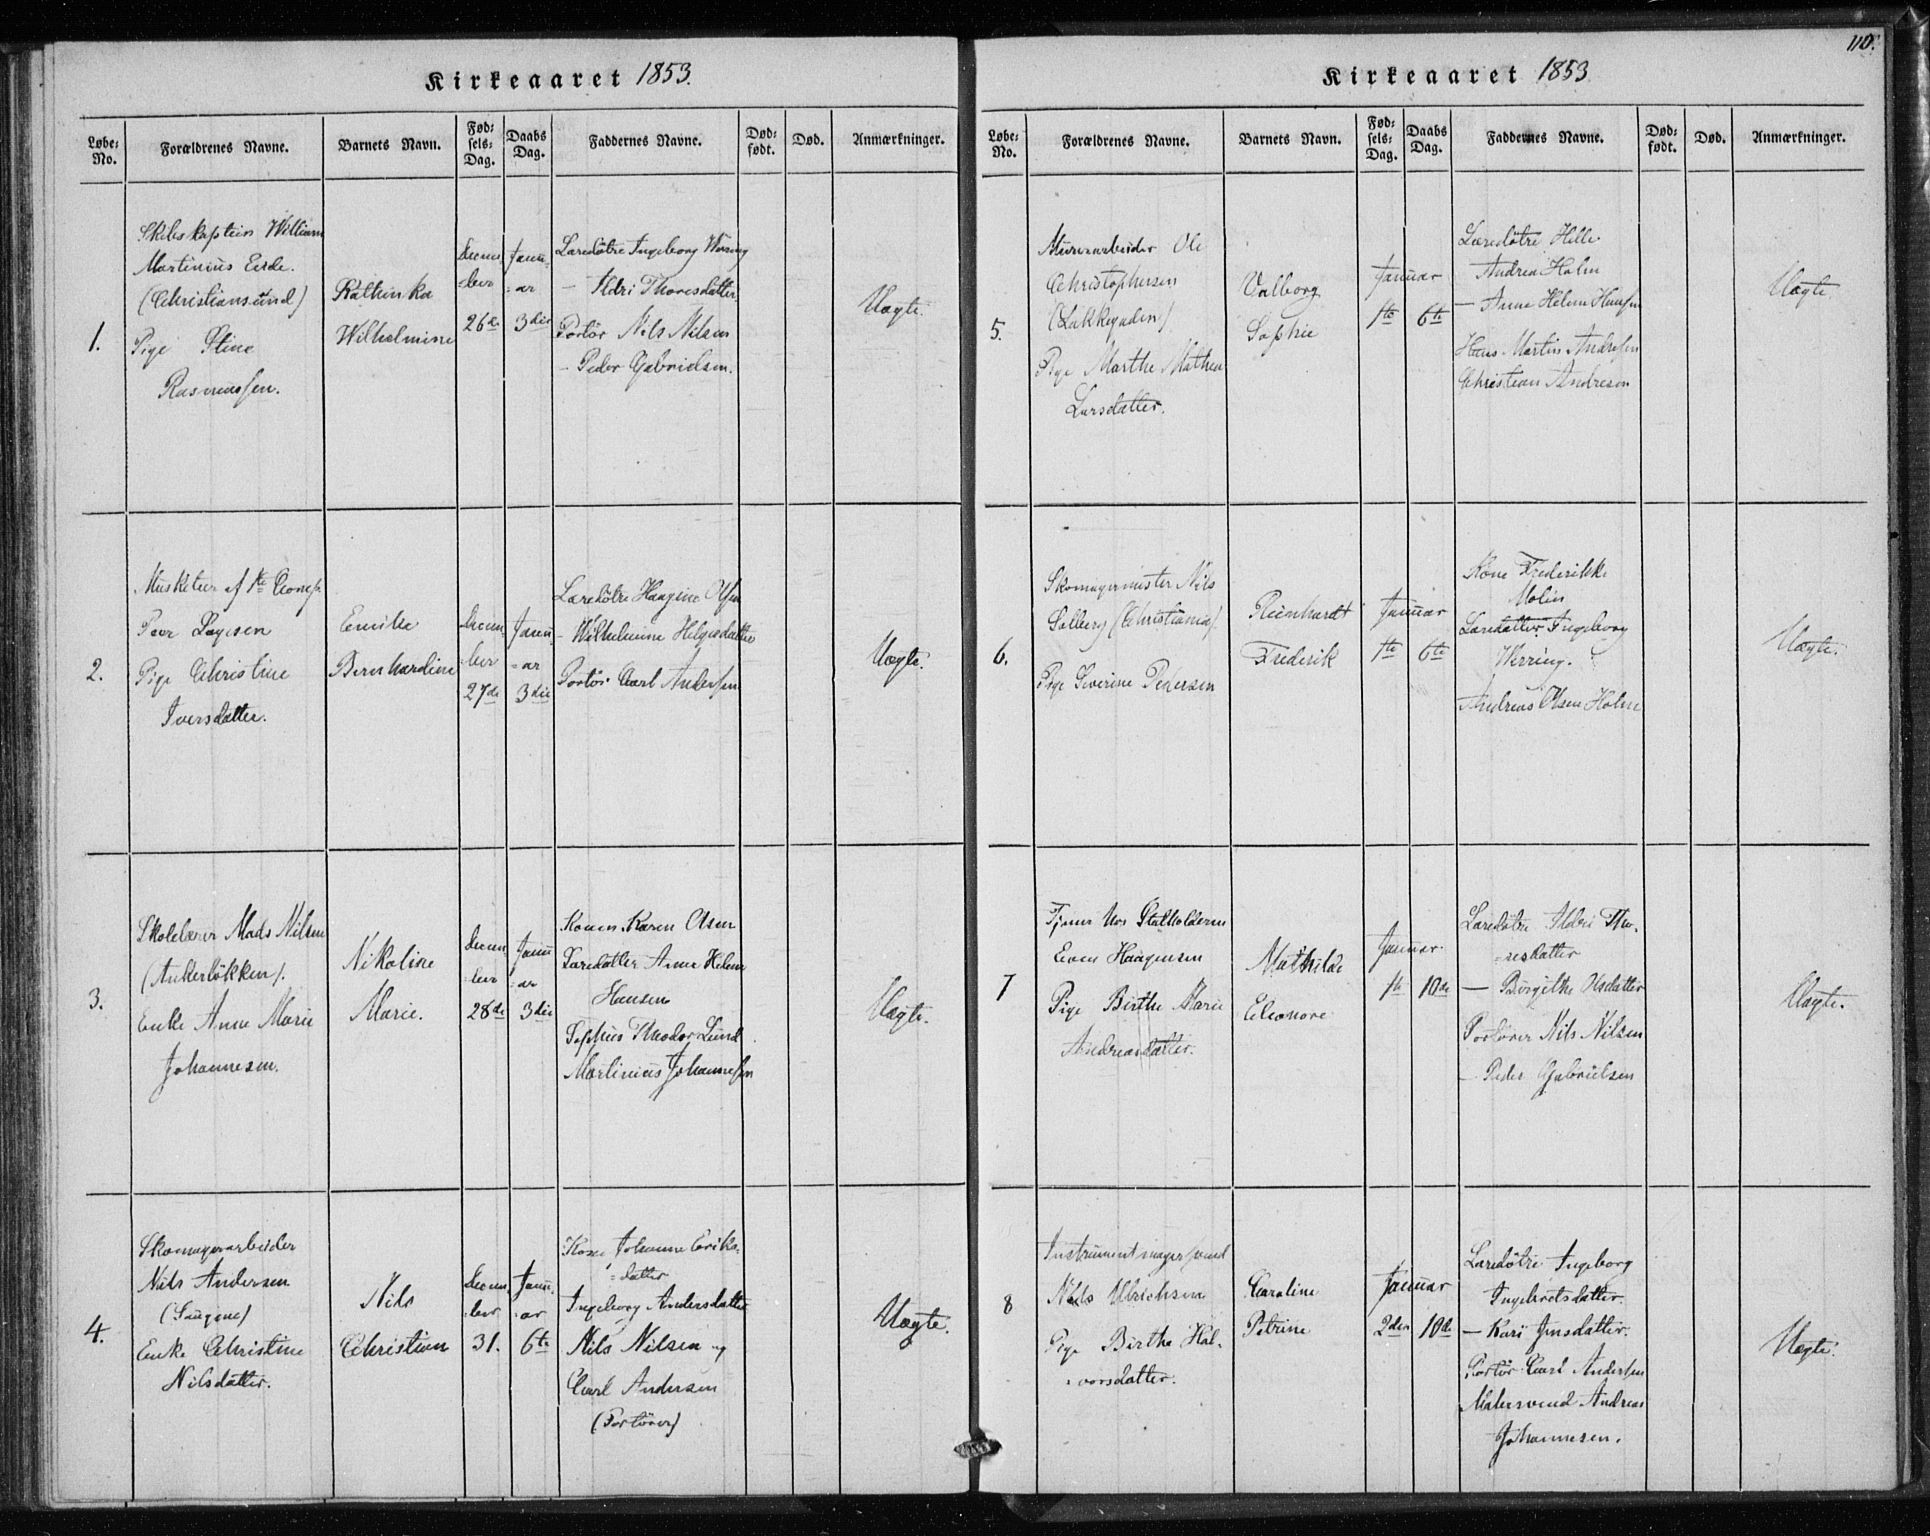 Kirkeaaret 1853.
Løbe-No.
Forældrenes Navne.
Barnets Navn.
Fødsels-Dag.
Daabs Dag.
Faddernes Navne.
Dødfødt.
Død.
Anmærkninger.
1.
Skibskaptein William
Martinius
(Christiansund)
Pige Stine
Rasmussen.
Kathinka
Wilhelmine
Decem-
ber
26de
Janu-
=ar
3die
Læredøtre Ingeborg
— Ildri Thoresdatter
Portør Nils Nilsen
— Peder Gabrielsen.
Uægte.
2.
Musketeer af 1te Comp.
Peer
Pige Christine
Iversdatter.
Emilie
Bernhardine
Decem-
ber
27de
Janu-
=ar
3die
Læredøtre Haagine Olsen
— Wilhelmine Helgesdatter
Portör Carl Andersen
Uægte.
3.
Skolelærer Mads Nilsen
(Ankerlökken).
Enke Anne Marie
Johannesen.
Nikoline
Marie.
Decem-
ber
28de
Janu-
=ar
3die
Konen Karen Olsen
Læredatter Anne Helene
Hansen
Sophus Theodor Lund
Martinius Johannessen
Uægte.
4.
Skomagerarbeider
Nils Andersen
(Saugene)
Enke Christine
Nilsdatter.
Nils
Christian
Decem-
ber
31.
Janu-
=ar
6te
Kone Johanne Eriks-
=datter
Ingeborg Andersdatter
Nils Nilsen og
Carl Andersen
(Portörer)
Uægte.
110.
Kirkeaaret 1853
Løbe-No.
Forældrenes Navne.
Barnets Navn.
Fødsels-Dag.
Daabs Dag.
Faddernes Navne.
Dødfødt.
Død.
Anmærkninger.
5.
Murerarbeider Ole
Christophersen
(Lakkegaden)
Pige Marthe Mathea
Larsdatter.
Valborg
Sophie
Januar
1te
6te
Læredøtre Helle
Andrea Holm
— Anne Helene Hansen
Hans Martin Andresen
Christian Andresen
Uægte
6.
Skomagermester Nils
Solberg (Christiania)
Pige Severine Pedersen
Reinhardt
Frederik
Januar
1te
6te
Kone Frederikke
Molin
Læredatter Ingeborg
Werring.
Andreas Olsen Holm
Uægte.
7
Tjener hos Statholderen
Even Haagensen
Pige Birthe Marie
Andreasdatter.
Mathilde
Eleonore
Januar
1te
10de
Læredøtre Ildri Tho-
=resdatter
— Birgithe Olsdatter
Portörer Nils Nilsen
— Peder Gabrielsen
Uægte.
8
Instrumentmagersvend
Nils Ulrichsen
Pige Birthe Hal-
=vorsdatter.
Caroline
Petrine
Januar
2den
10de
Læredøtre Ingeborg
Ingebretsdatter.
— Kari Jensdatter.
Portör Carl Andersen
Malersvend Andreas
Johannesen.
Uægte.